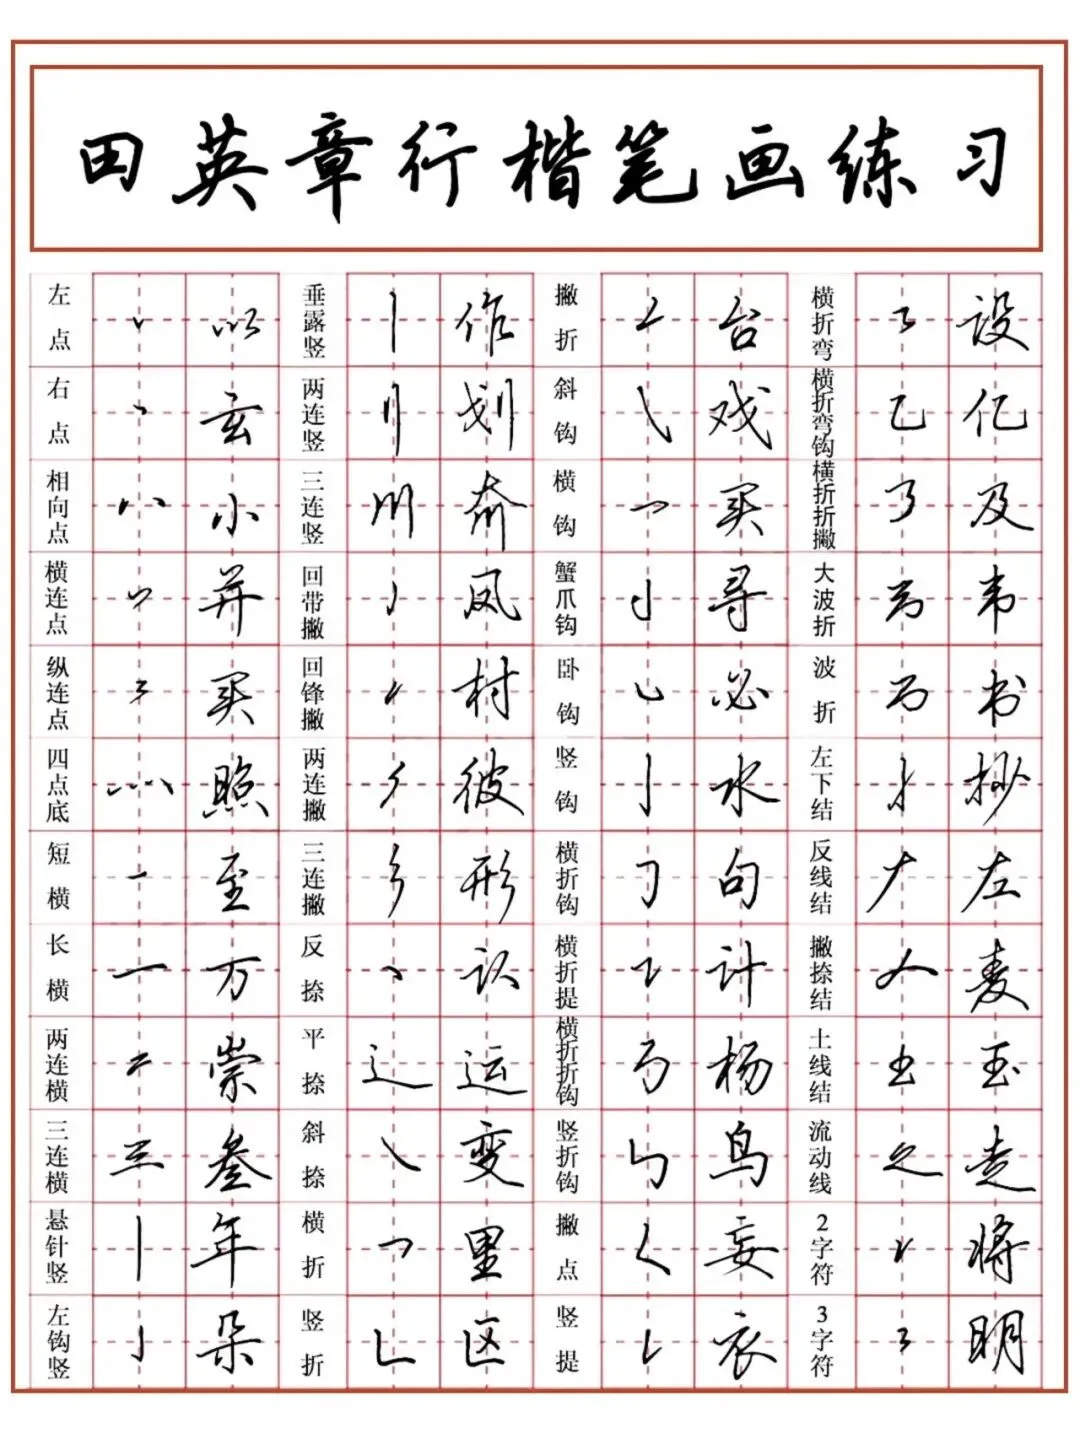 田英章行楷笔画练习
左点 以 垂露竖 作 撇折 台 横折弯 设
右点 玄 两连竖 划 斜钩 戏 横折弯钩 亿
相向点 小 三连竖 奔 横钩 买 横折折撇 及
横连点 并 回带撇 凤 蟹爪钩 寻 大波折 韦
纵连点 买 回锋撇 村 卧钩 必 波折 书
四点底 照 两连撇 彼 竖钩 水 左下结 抄
短横 至 三连撇 形 横折钩 句 反线结 左
长横 万 反捺 识 横折提 计 撇捺结 麦
两连横 崇 平捺 辶 运 横折折钩 杨 土线结 玉
三连横 叁 斜捺 变 竖折钩 鸟 流动线 走
悬针竖 年 横折 里 撇点 妄 2字符 将
左钩竖 朵 竖折 区 竖提 衣 3字符 明